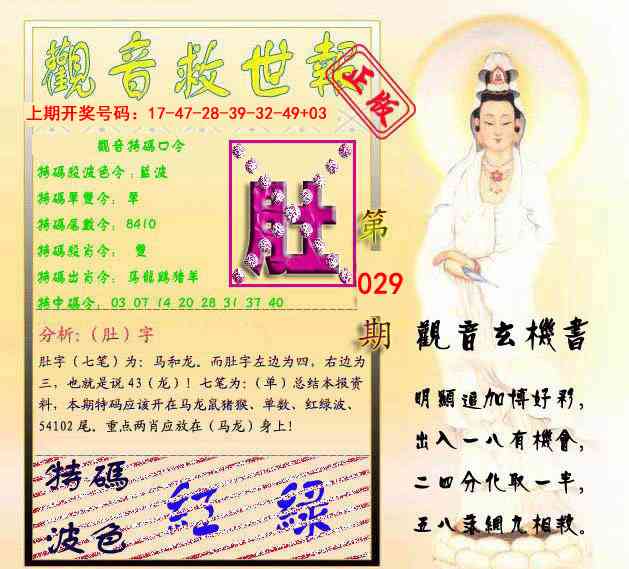 觀音救世報
正版
上期开奖号码：17-47-28-39-32-49+03
觀音特碼口令
特碼段波色令：藍波
特碼單雙令： 單
特碼尾數令： 8410
特碼段肖令： 雙
特碼出肖令： 馬龍鷄猪羊
特中碼令： 03 07 14 20 28 31 37 40
肚
第
029
期
分析:（肚）字
肚字（七笔）为：马和龙。而肚字左边为四，右边为
三，也就是说 43（龙）！七笔为:（单）总结本报资
料，本期特码应该开在马龙鼠猪猴、单数、红绿波、
54102 尾。重点两肖应放在（马龙）身上!
特碼
波色
紅 綠
觀音玄機書
明顯追加博好彩，
出入一八有機會，
二四分化取一半，
五八乘網九相救。